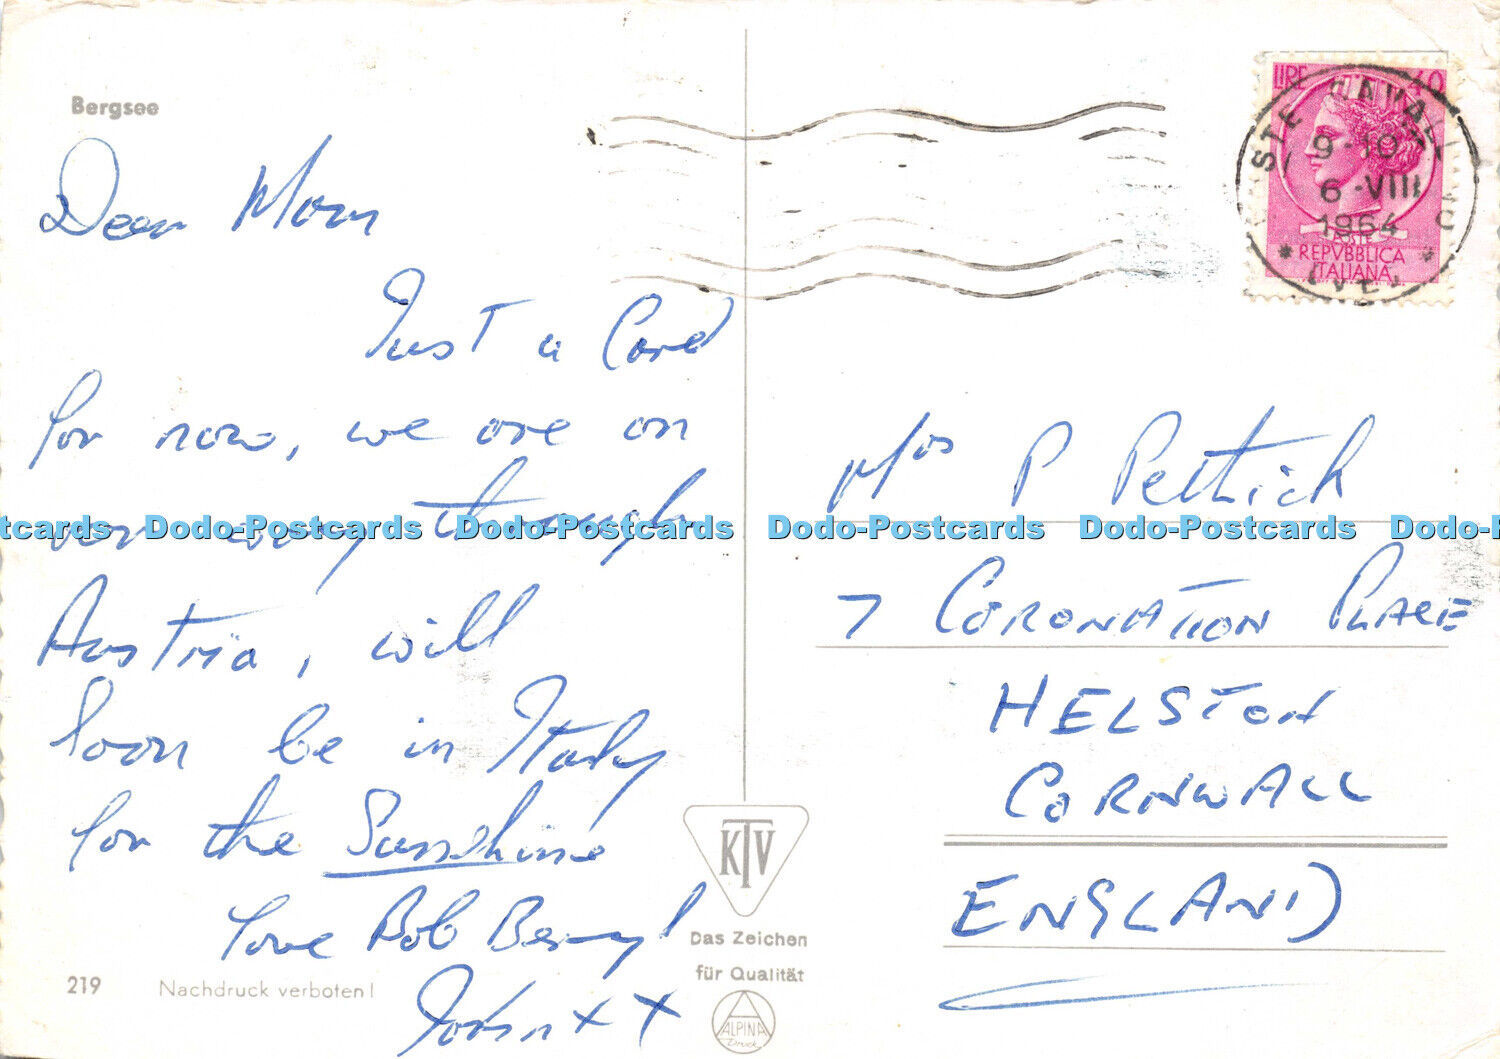 Bergsee
Dear Mom
Just a Card
for now, we are on
our way through
Austria, will
soon be in Italy
for the Sunshine
Love Bob Beryl
John x x
219
Nachdruck verboten!
KTV
Das Zeichen
für Qualität
ALPINA
Druck
LIRE 40
9-10
6-VIII
1964
POSTE
REPVBBLICA
ITALIANA
Mrs P Pethick
7 CORONATION PLACE
HELSTON
CORNWALL
ENGLAND
Dodo-Postcards Dodo-Postcards Dodo-Postcards Dodo-Postcards